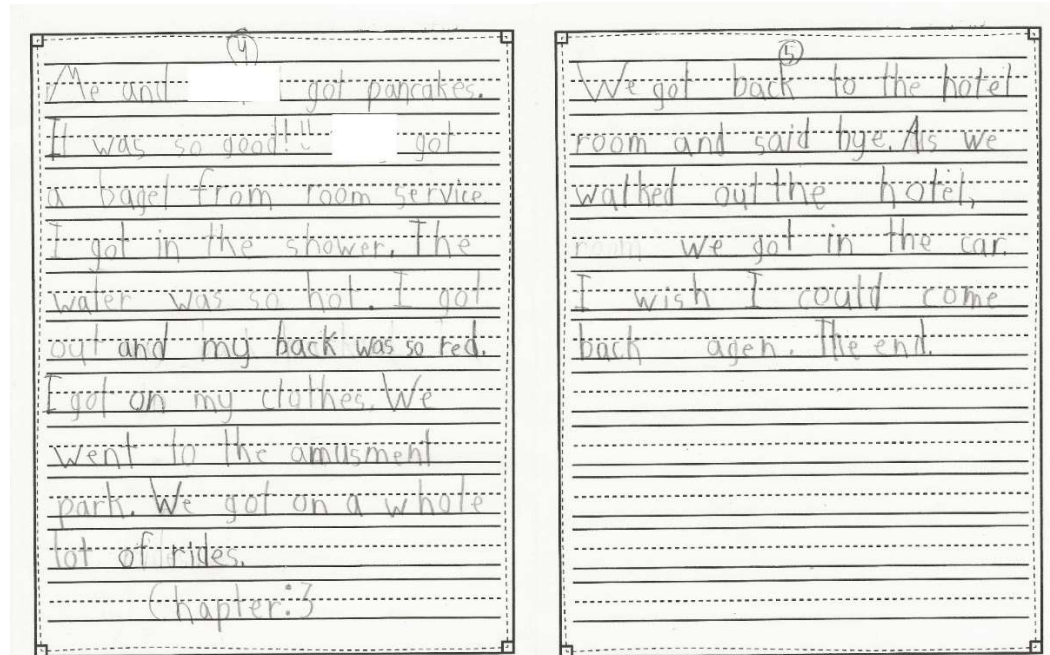 4
Me and got pancakes.
It was so good!! got
a bagel from room service
I got in the shower. The
water was so hot. I got
out and my back was so red.
I got on my clothes. We
went to the amusment
park. We got on a whole
lot of rides.
Chapter:3
5
We got back to the hotel
room and said bye. As we
walked out the hotel,
room we got in the car.
I wish I could come
back agen. The end.